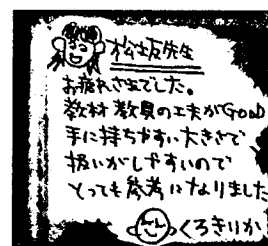 松坂先生
お疲れさまでした。
教材教具の工夫がGooD
手に持ちやすい大きさで
扱いがしやすいので
とっても参考になりました
くろきりか